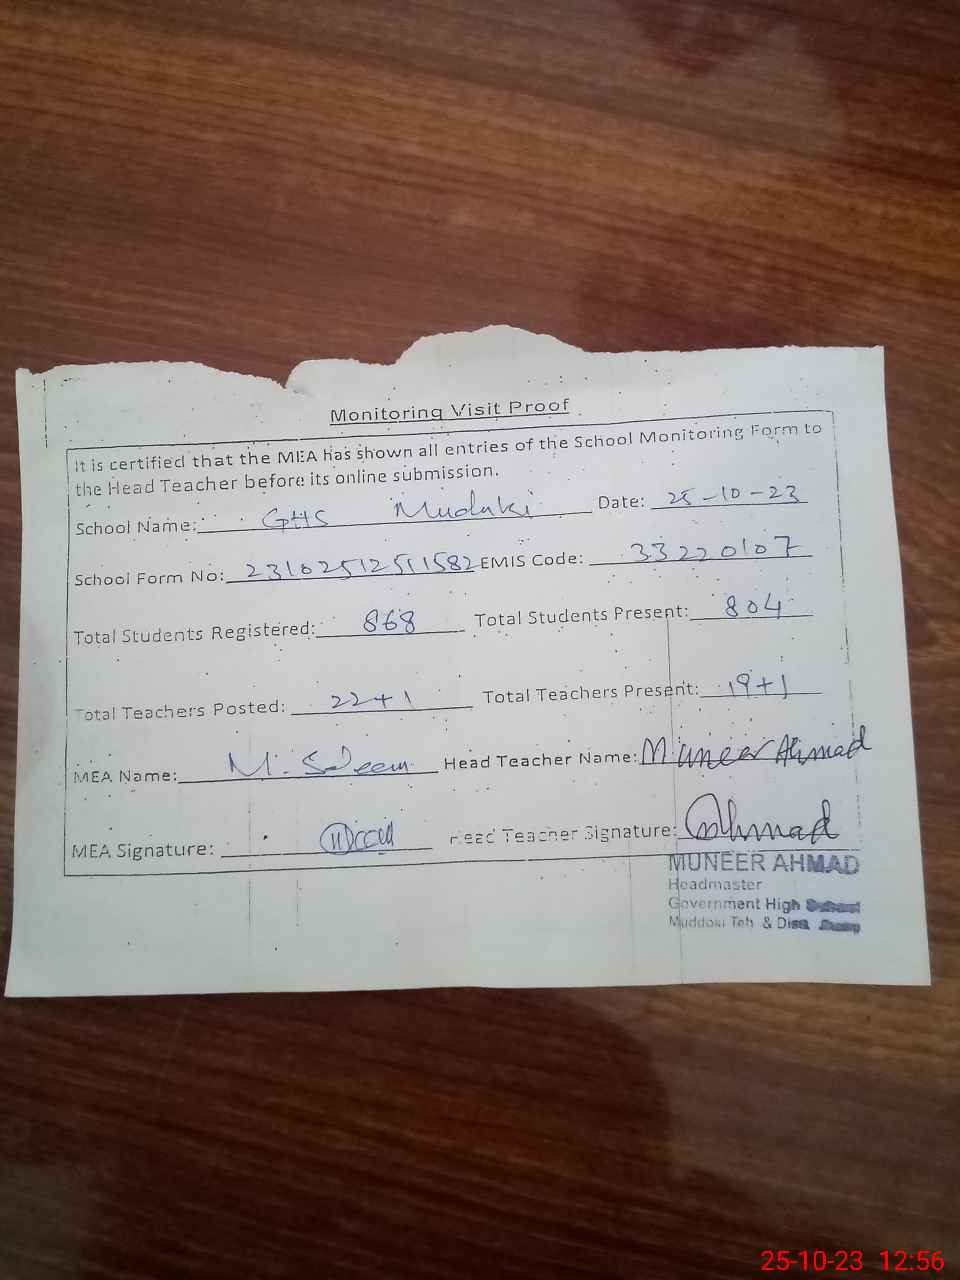 Monitoring Visit Proof
It is certified that the MEA has shown all entries of the School Monitoring Form to
the Head Teacher before its online submission.
School Name: GHS Muduki Date: 25-10-23
School Form No: 23102512511582 EMIS Code: 33220107
Total Students Registered: 868 Total Students Present: 804
Total Teachers Posted: 22+1 Total Teachers Present: 19+1
MEA Name: M. Saleem Head Teacher Name: Muneer Ahmad
MEA Signature: Head Teacher Signature: Ahmad
MUNEER AHMAD
Headmaster
Government High School
Muddoki Teh & Dist
25-10-23 12:56